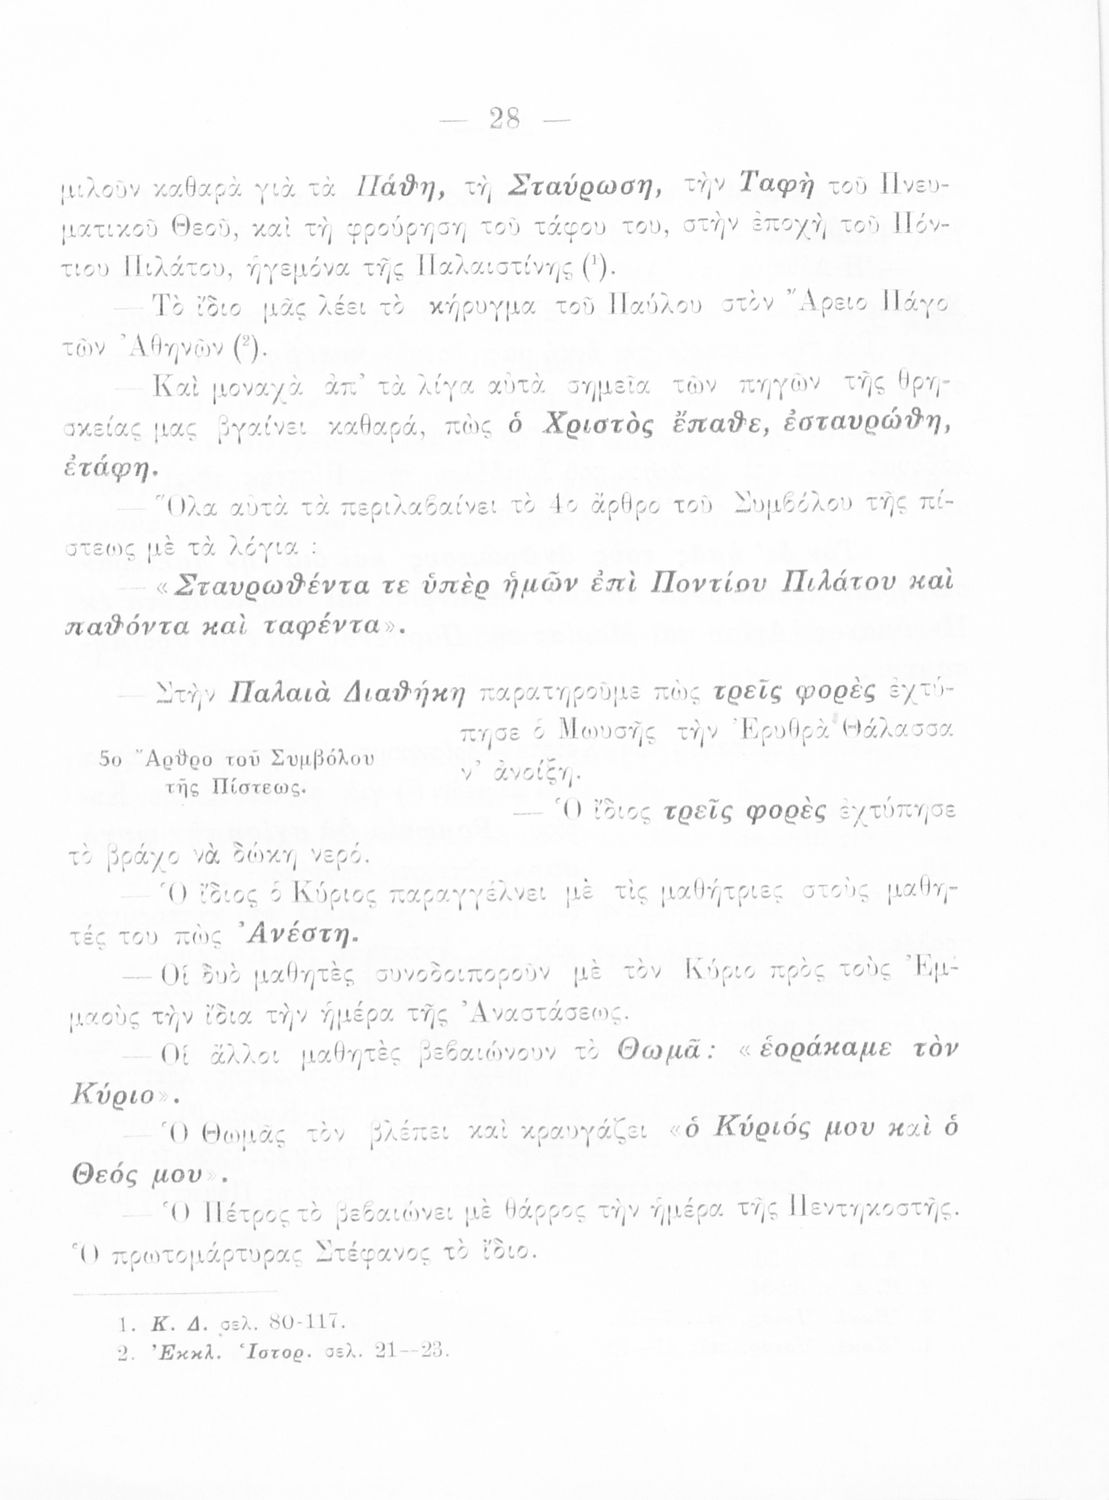 — 28 —
μιλοῦν καθαρὰ γιὰ τὰ Πάθη, τὴ Σταύρωση, τὴν Ταφὴ τοῦ Πνευ-
ματικοῦ Θεοῦ, καὶ τὴ φρούρηση τοῦ τάφου του, στὴν ἐποχὴ τοῦ Πόν-
τιου Πιλάτου, ἡγεμόνα τῆς Παλαιστίνης (¹).
— Τὸ ἴδιο μᾶς λέει τὸ κήρυγμα τοῦ Παύλου στὸν Ἄρειο Πάγο
τῶν Ἀθηνῶν (²).
— Καὶ μοναχὰ ἀπ’ τὰ λίγα αὐτὰ σημεῖα τῶν πηγῶν τῆς θρη-
σκείας μας βγαίνει καθαρά, πὼς ὁ Χριστὸς ἔπαθε, ἐσταυρώθη,
ἐτάφη.
— Ὅλα αὐτὰ τὰ περιλαβαίνει τὸ 4ο ἄρθρο τοῦ Συμβόλου τῆς πί-
στεως μὲ τὰ λόγια :
— «Σταυρωθέντα τε ὑπὲρ ἡμῶν ἐπὶ Ποντίου Πιλάτου καὶ
παθόντα καὶ ταφέντα».
— Στὴν Παλαιὰ Διαθήκη παρατηροῦμε πὼς τρεῖς φορὲς ἐχτύ-
πησε ὁ Μωυσῆς τὴν Ἐρυθρὰ Θάλασσα
5ο Ἄρθρο τοῦ Συμβόλου
τῆς Πίστεως.
ν’ ἀνοίξη.
— Ὁ ἴδιος τρεῖς φορὲς ἐχτύπησε
τὸ βράχο νὰ δώκη νερό.
— Ὁ ἴδιος ὁ Κύριος παραγγέλνει μὲ τὶς μαθήτριες στοὺς μαθη-
τές του πὼς Ἀνέστη.
— Οἱ δυὸ μαθητὲς συνοδοιποροῦν μὲ τὸν Κύριο πρὸς τοὺς Ἐμ-
μαοὺς τὴν ἴδια τὴν ἡμέρα τῆς Ἀναστάσεως.
— Οἱ ἄλλοι μαθητὲς βεβαιώνουν τὸ Θωμᾶ: «ἑοράκαμε τὸν
Κύριο».
— Ὁ Θωμᾶς τὸν βλέπει καὶ κραυγάζει «ὁ Κύριός μου καὶ ὁ
Θεός μου».
— Ὁ Πέτρος τὸ βεβαιώνει μὲ θάρρος τὴν ἡμέρα τῆς Πεντηκοστῆς.
Ὁ πρωτομάρτυρας Στέφανος τὸ ἴδιο.
1. Κ. Δ. σελ. 80-117.
2. Ἐκκλ. Ἱστορ. σελ. 21—23.